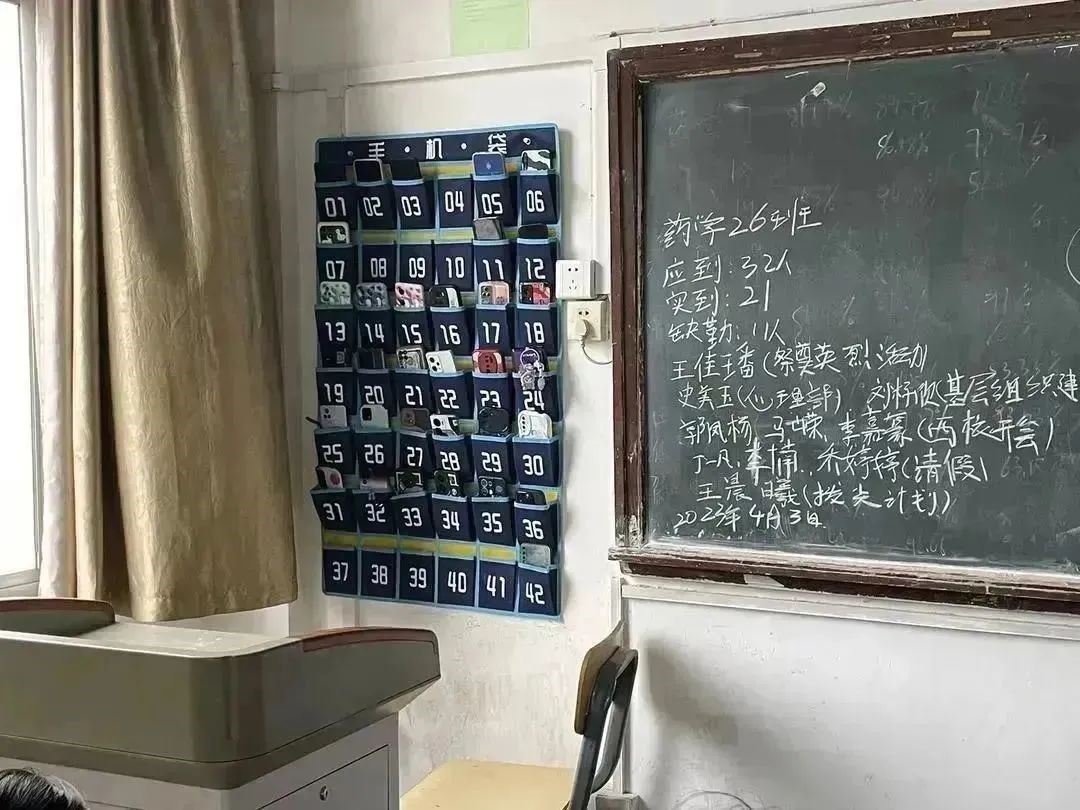 手·机·袋
01 02 03 04 05 06
07 08 09 10 11 12
13 14 15 16 17 18
19 20 21 22 23 24
25 26 27 28 29 30
31 32 33 34 35 36
37 38 39 40 41 42
药学26班
应到:32人
实到:21
缺勤:11人
王佳璠(祭奠英烈活动)
史美玉(心理部) 刘 欣 基层组织建
郭凤杨、马世荣、李嘉豪(两校开会)
丁一凡、李楠、乔婷婷(请假)
王晨曦(拔尖计划)
2023年4月3日